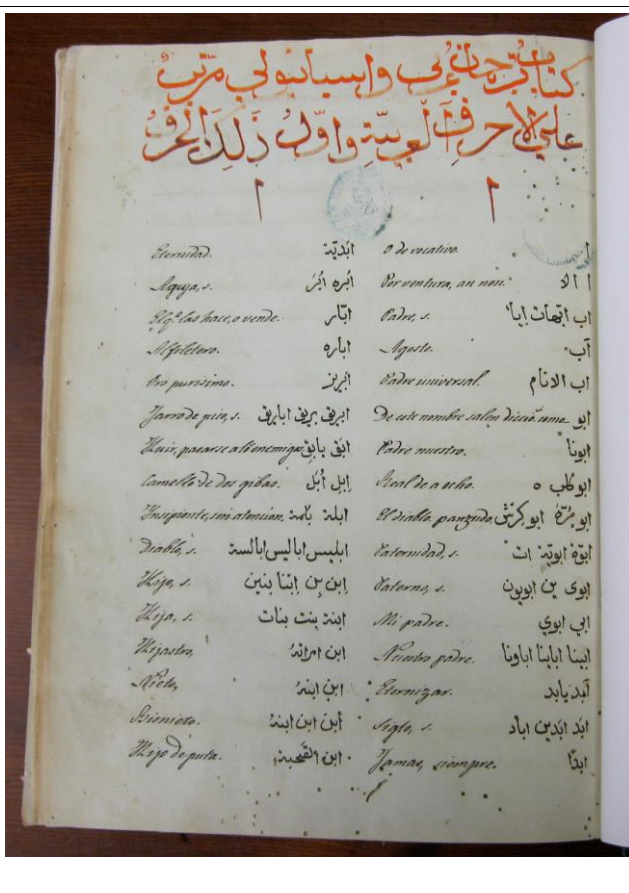 كتاب ترجمان عربي واسبانيولي مرتب
علي الاحرف العربية واوّل ذَلِكَ الحرف
ا ا
ا O de vocativo.
ا الا Por ventura, an non.
اب ابّهات ابا Padre, s.
آب Agosto.
اب الانام Padre universal.
ابو De este nombre salen diccio.ˢ como
ابونا Padre nuestro.
ابو كلب ه Real de a ocho.
ابو مُرّة ابو كرش El diablo. panzudo.
ابوّة ابويّة ات Paternidad, s.
ابوى ين ابويون Paterno, s.
ابي ابوي Mi padre.
ابينا ابابنا اباونا Nuestro padre.
آبد يابد Eternizar.
ابد ابدين اباد Siglo, s.
ابدًا Jamas, siempre.
ابديّة Eternidad.
ابره ابر Aguja, s.
ابّار El q.ᵉ las hace, o vende.
اباره Alfiletero.
ابريز Oro purisimo.
ابريق بريق اباريق Jarro de pico, s.
ابق يابق Huir, pasarse al enemigo.
اِبِل اُبُل Camello de dos gibas.
ابلة بلمة Insipiente, sin atencion.
ابليس اباليس ابالسة Diablo, s.
اِبن بن اِبنا بنين Hijo, s.
ابنة بنت بنات Hija, s.
ابن امراته Hijastro,
ابن ابنه Nieto,
أبن ابن ابنه Bisnieto.
ابن القحبة Hijo de puta.